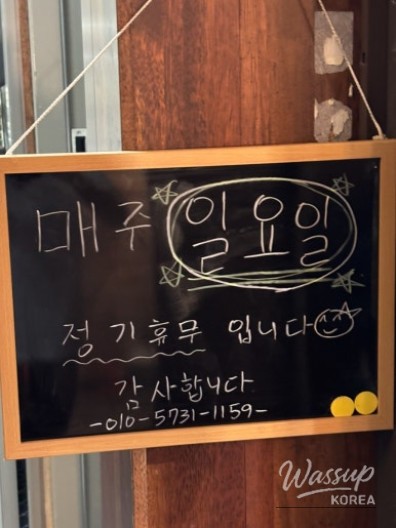 매주 일요일
정기휴무 입니다
감사합니다
-010-5731-1159-
Wassup
KOREA